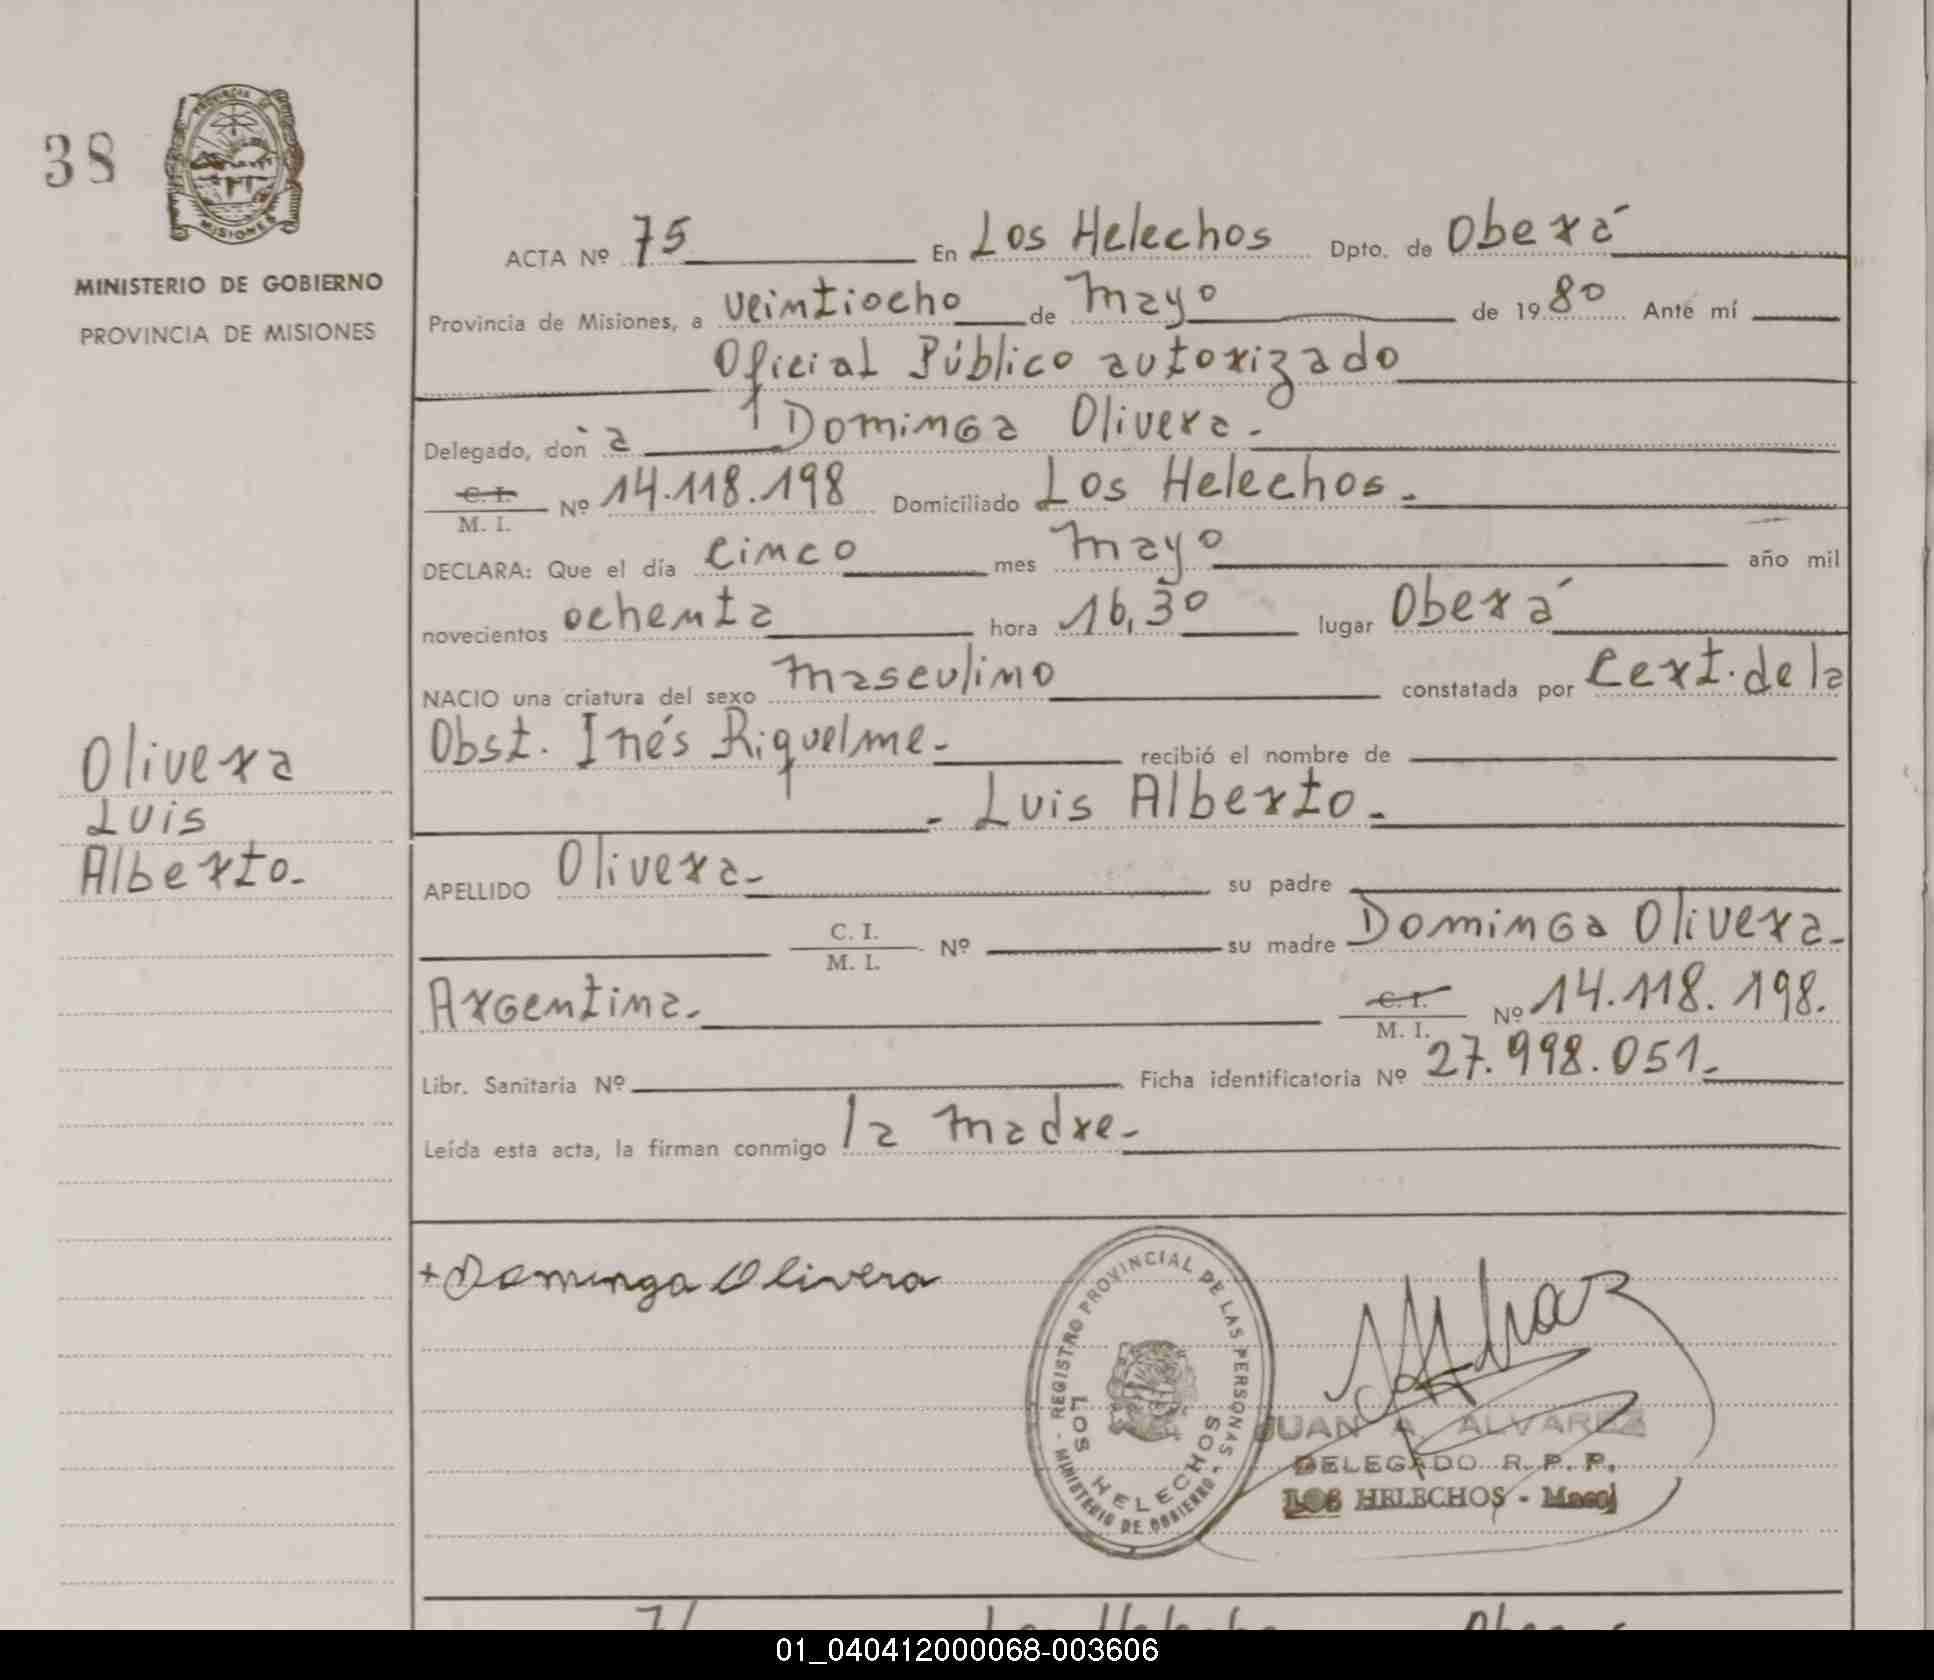 38
PROVINCIA DE
MISIONES
MINISTERIO DE GOBIERNO
PROVINCIA DE MISIONES
ACTA Nº 75 En Los Helechos Dpto. de Oberá
Provincia de Misiones, a veintiocho de mayo de 1980 Ante mí
Oficial Público autorizado
Delegado, don a Dominga Olivera.
C. I.
M. I. Nº 14.118.198 Domiciliado Los Helechos.
DECLARA: Que el día cinco mes mayo año mil
novecientos ochenta hora 16,30 lugar Oberá
NACIO una criatura del sexo masculino constatada por Cert. de la
Obst. Inés Riquelme. recibió el nombre de
Luis Alberto.
Olivera
Luis
Alberto.
APELLIDO Olivera. su padre
C. I.
M. I. Nº su madre Dominga Olivera.
Argentina. C. I.
M. I. Nº 14.118.198.
Libr. Sanitaria Nº Ficha identificatoria Nº 27.998.051.
Leída esta acta, la firman conmigo la madre.
+Dominga Olivera
REGISTRO PROVINCIAL DE LAS PERSONAS
MINISTERIO DE GOBIERNO
LOS HELECHOS
JUAN A. ALVAREZ
DELEGADO R. P. P.
LOS HELECHOS -
01_040412000068-003606